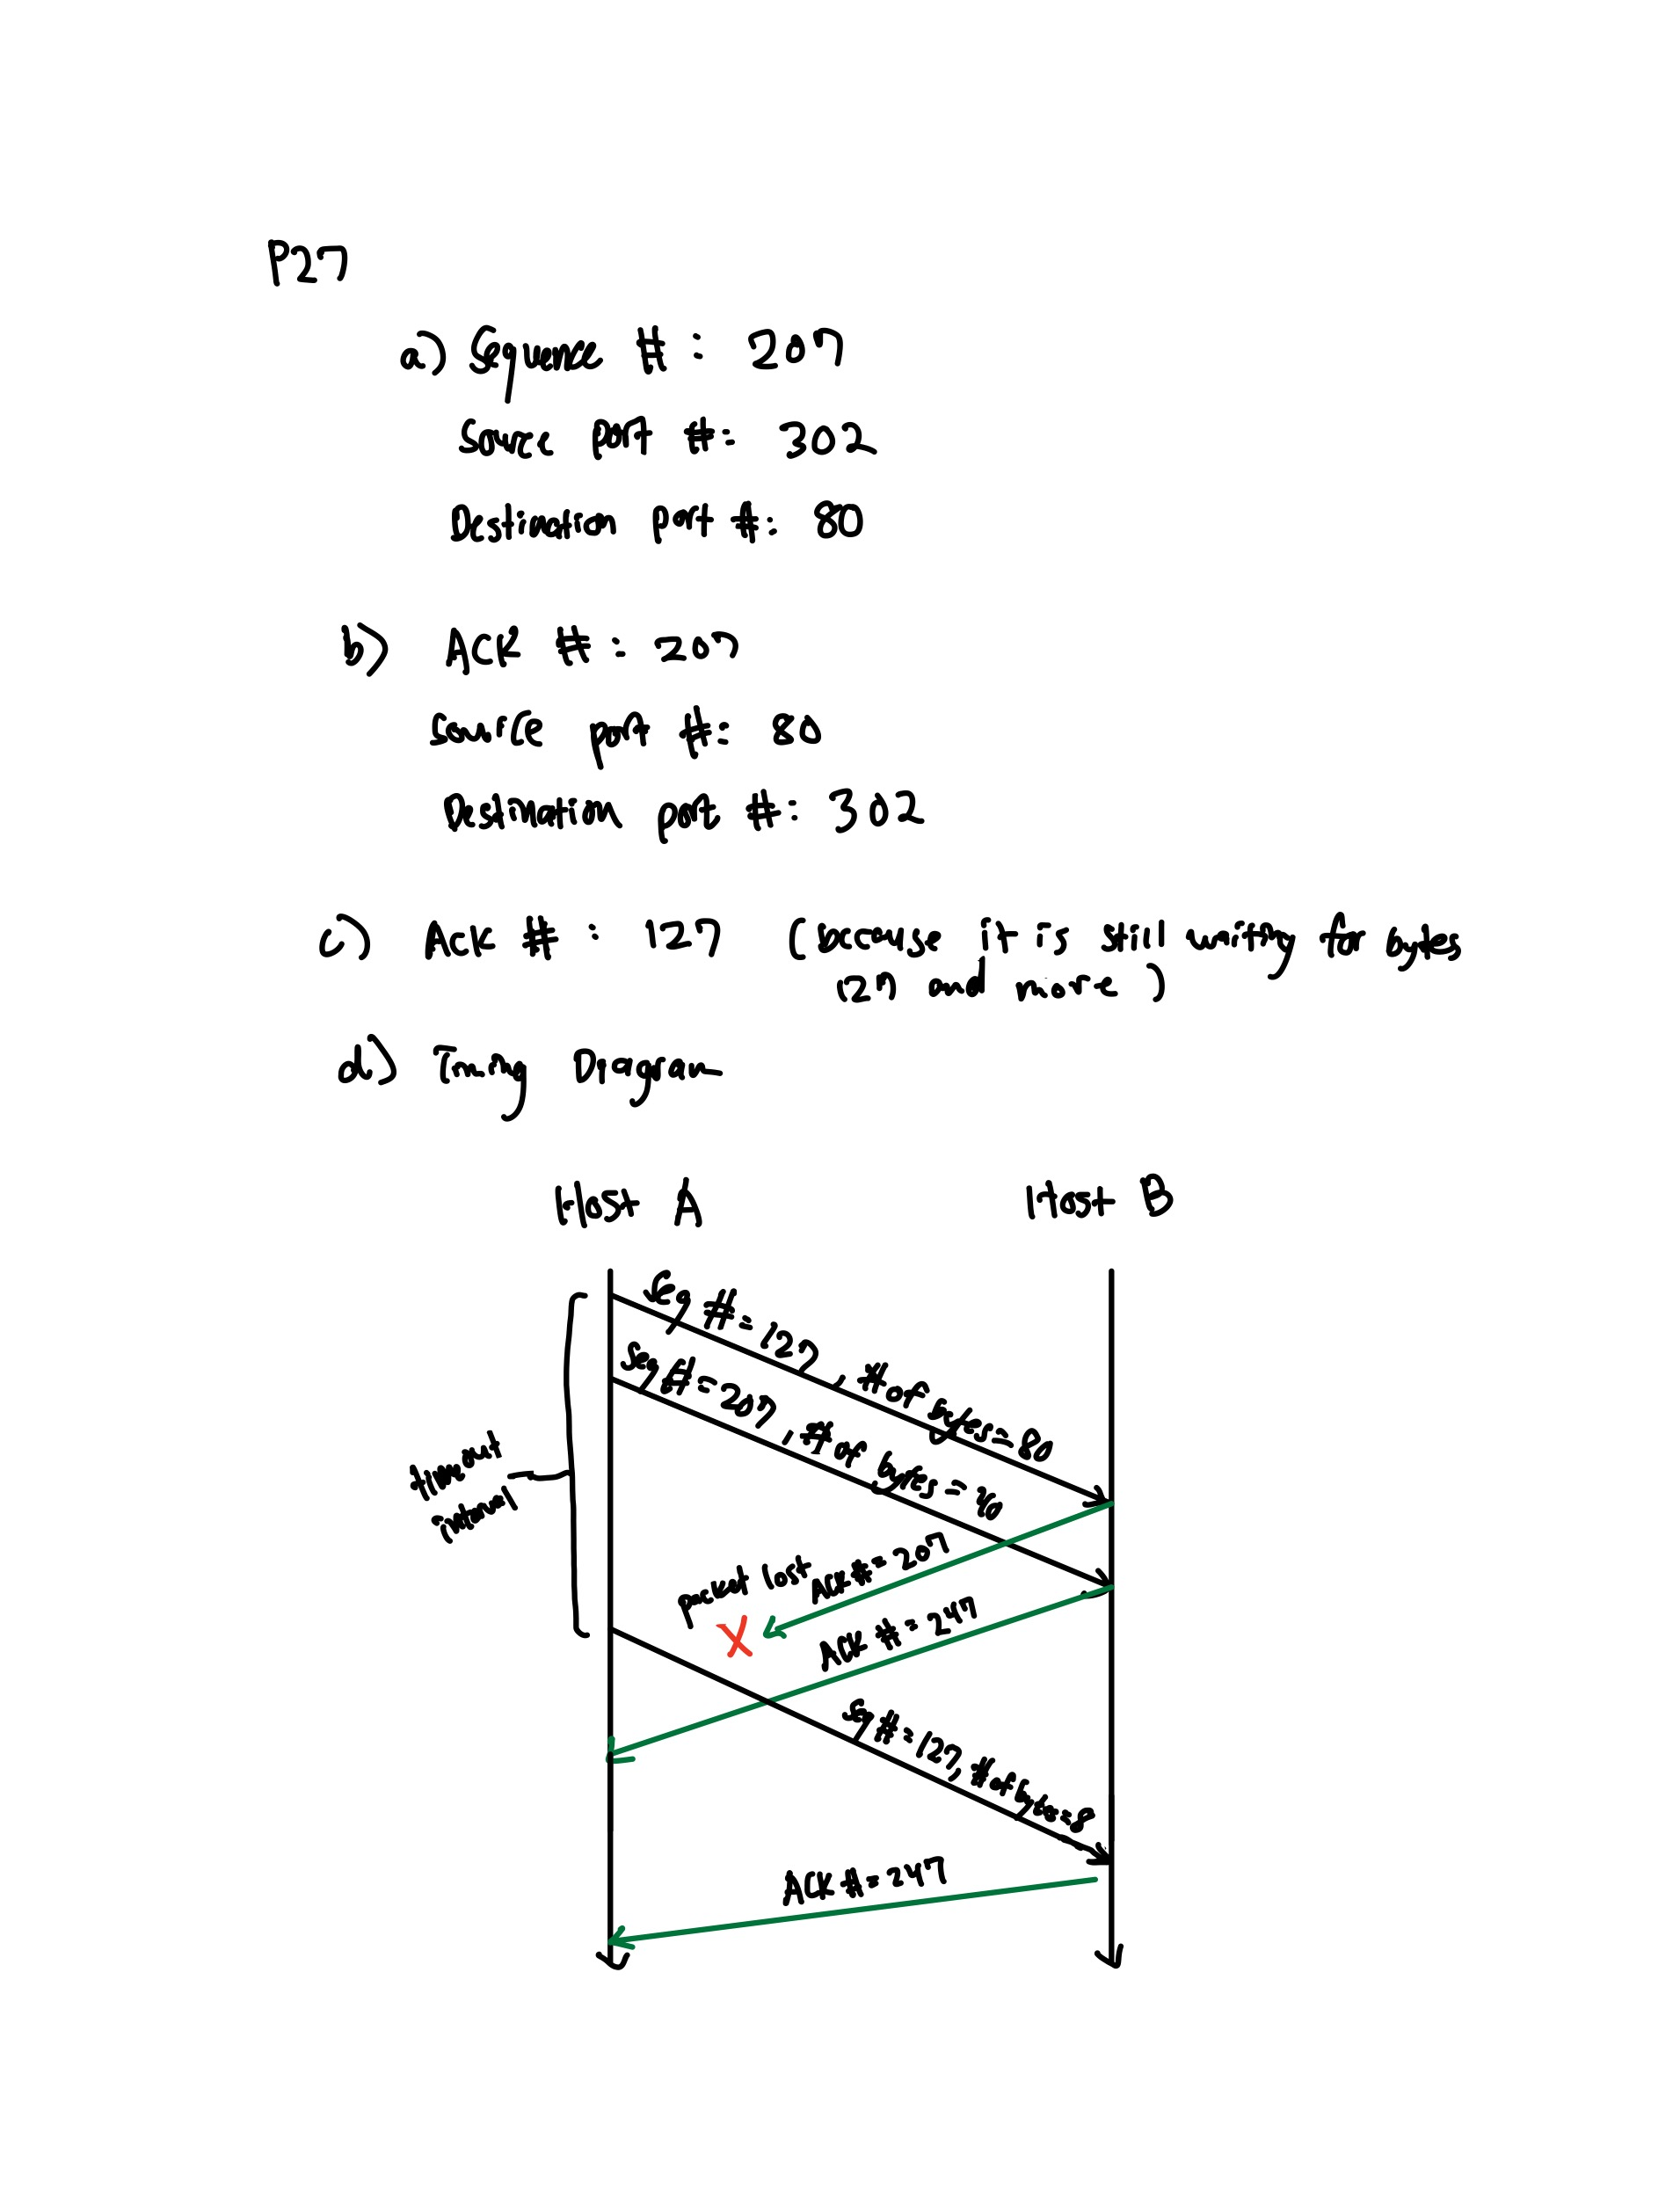 P27
a) Sequence # : 207
source port #: 302
Destination port #: 80
b) ACK # : 207
source port #: 80
Destination port #: 302
c) Ack # : 127 (because it is still waiting for bytes
127 and more)
d) Timing Diagram
Host A Host B
Seq #= 127, # of bytes = 80
Seq #= 207, # of bytes = 40
timeout
interval
packet lost
ACK #= 207
ACK #= 247
Seq #= 127, # of bytes=
ACK #= 247